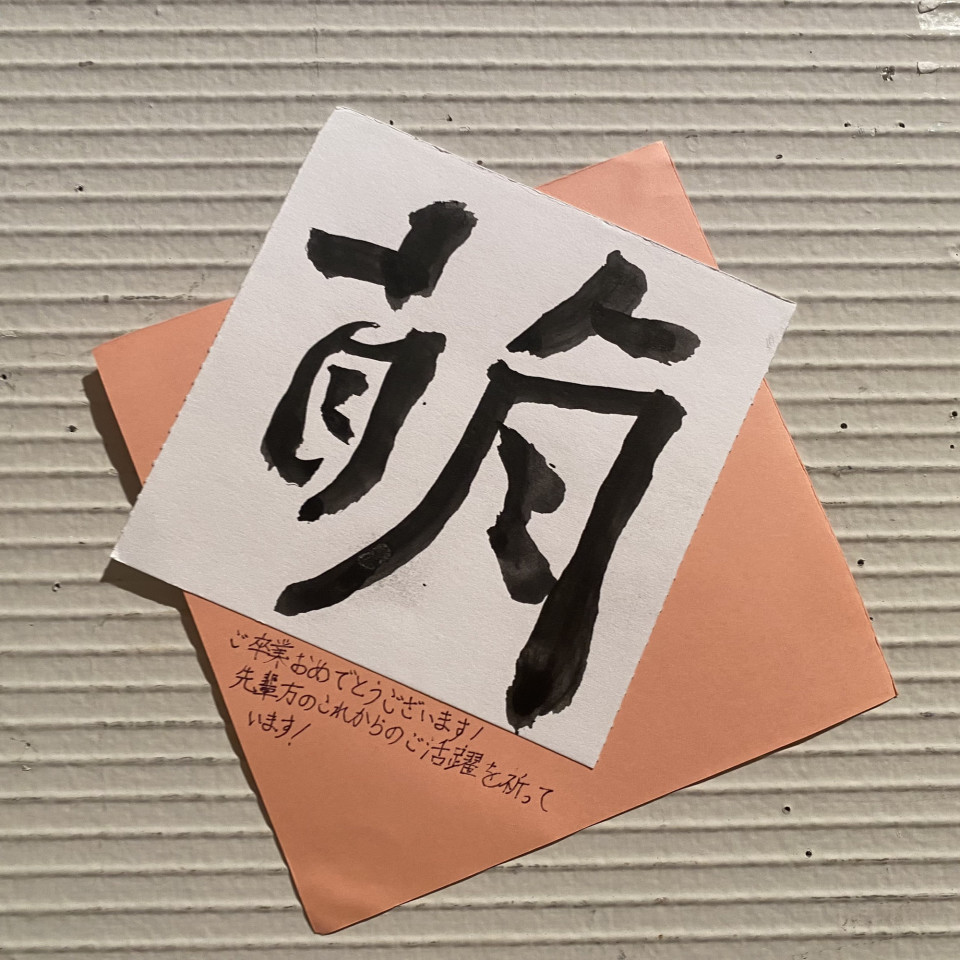 萌
ご卒業おめでとうございます!
先輩方のこれからのご活躍を祈って
います!